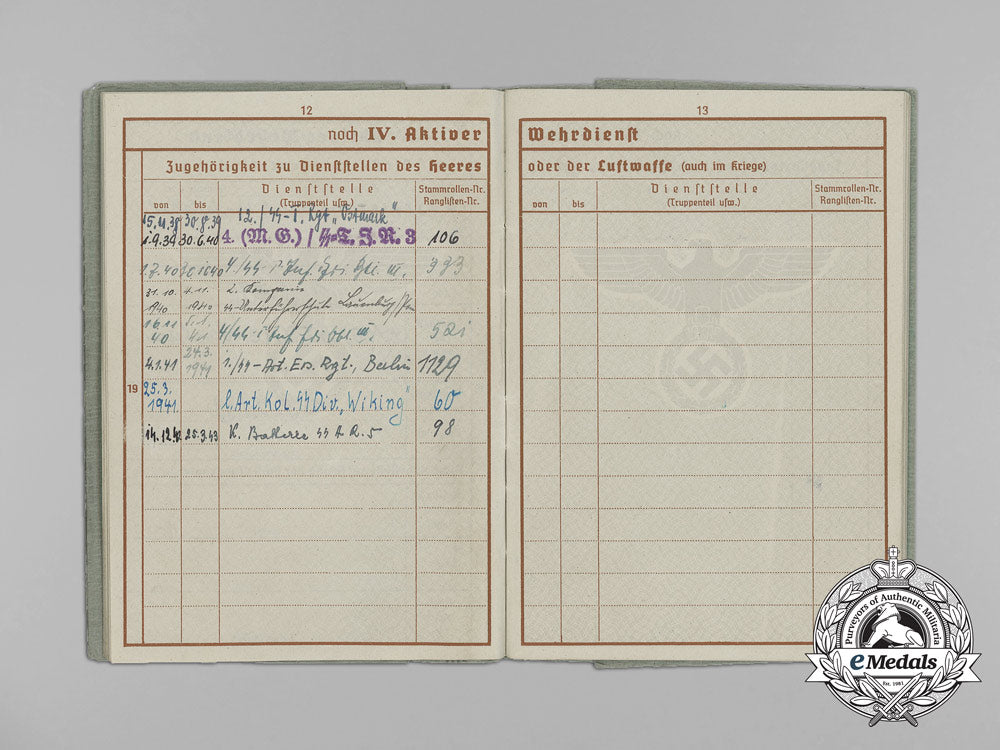 12
noch IV. Aktiver
Zugehörigkeit zu Dienststellen des Heeres
von bis Dienststelle (Truppenteil usw.) Stammrollen-Nr. Ranglisten-Nr.
15.11.38 30.8.39 12./SS-I. Rgt „Ostmark"
1.9.39 30.6.40 4. (M.G.)/SS-T.J.R.3 106
1.7.40 4/SS III. 393
31.10. 1940 4.11. 1940 2. Kompanie
SS-Unterführerschule Lauenburg/Pom
16.11 40 41 4/SS III. 521
4.1.41 24.3. 1941 1./SS-Art. Ers. Rgt., Berlin 1129
19
25.3. 1941. l. Art. Kol. SS Div. „Wiking" 60
14.12.42 25.3.43 Batterie SS A.R. 5 98
13
Wehrdienst
oder der Luftwaffe (auch im Kriege)
von bis Dienststelle (Truppenteil usw.) Stammrollen-Nr. Ranglisten-Nr.
Purveyors of Authentic Militaria
eMedals
Est. 1981